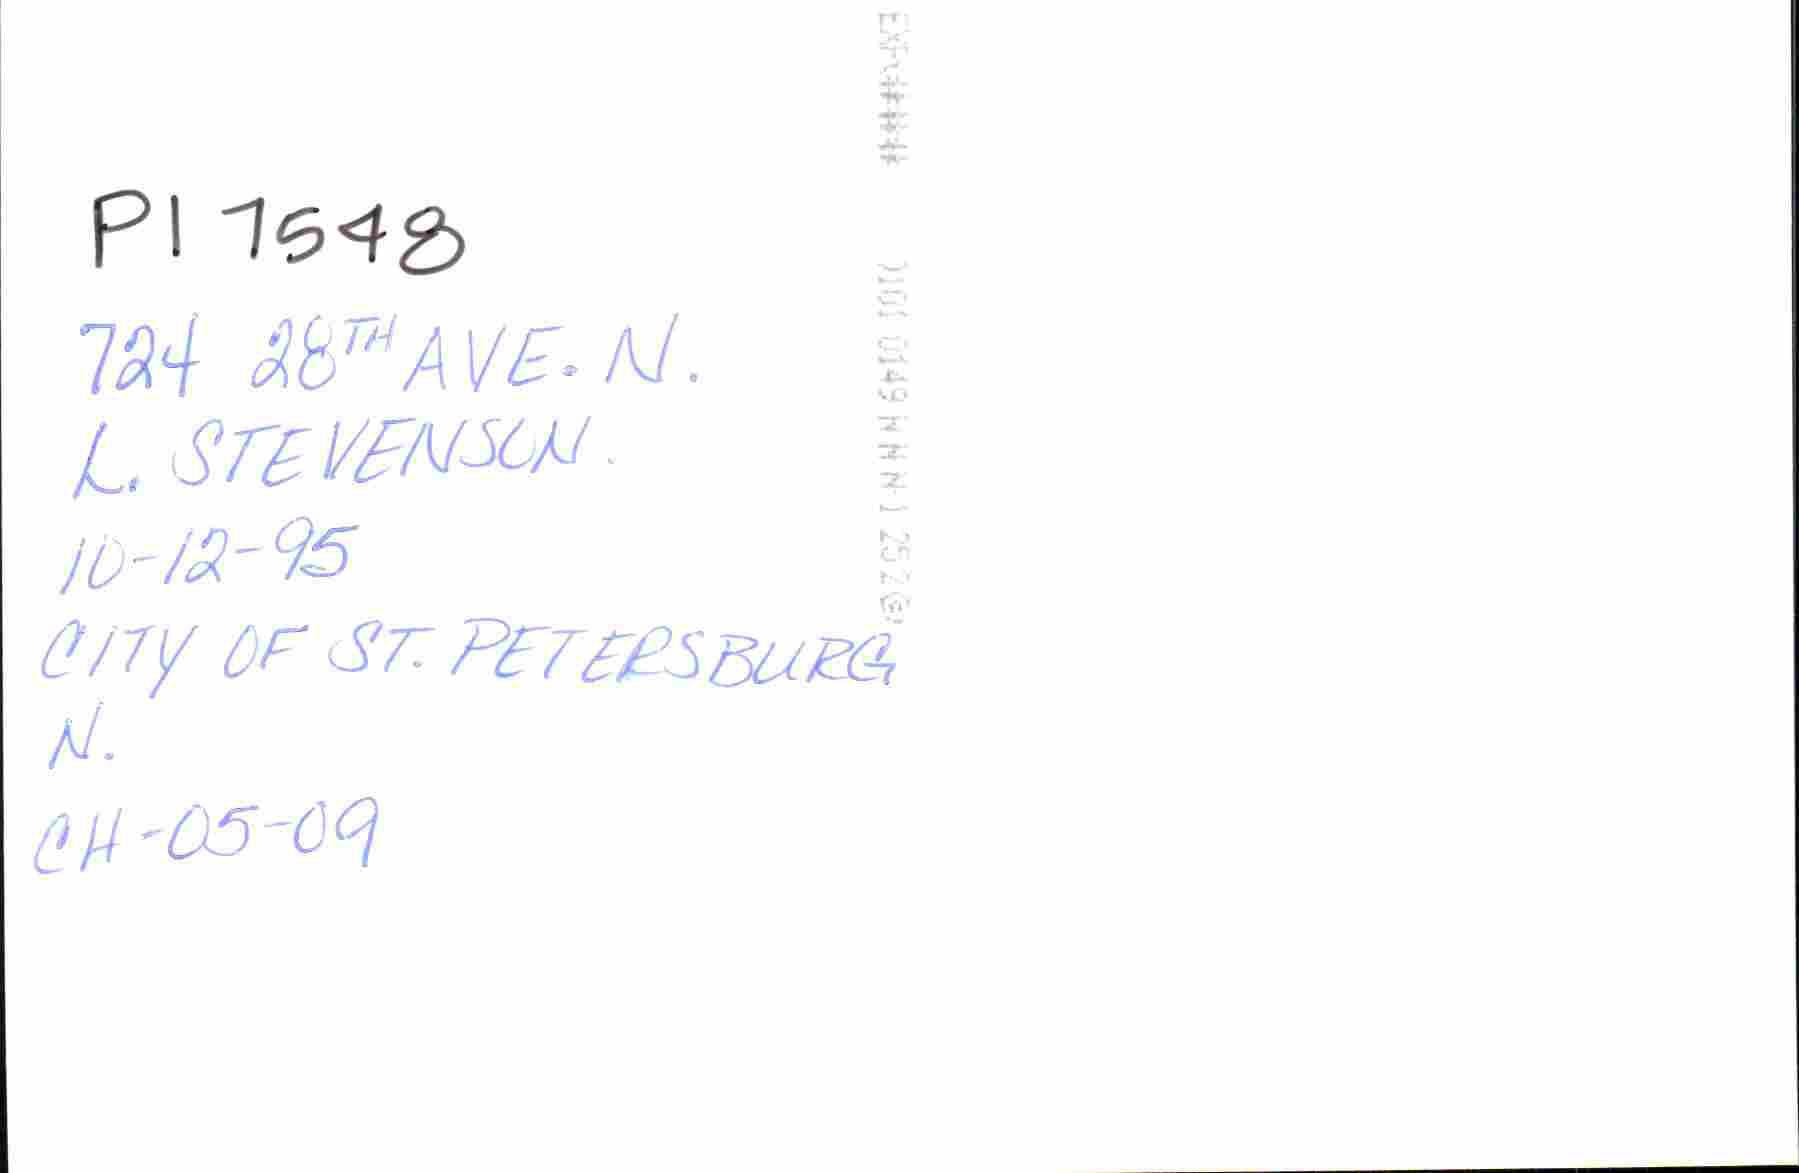 PI 7548
724 28TH AVE. N.
L. STEVENSON.
10-12-95
CITY OF ST. PETERSBURG
N.
CH-05-09
0149 N N N-1 25